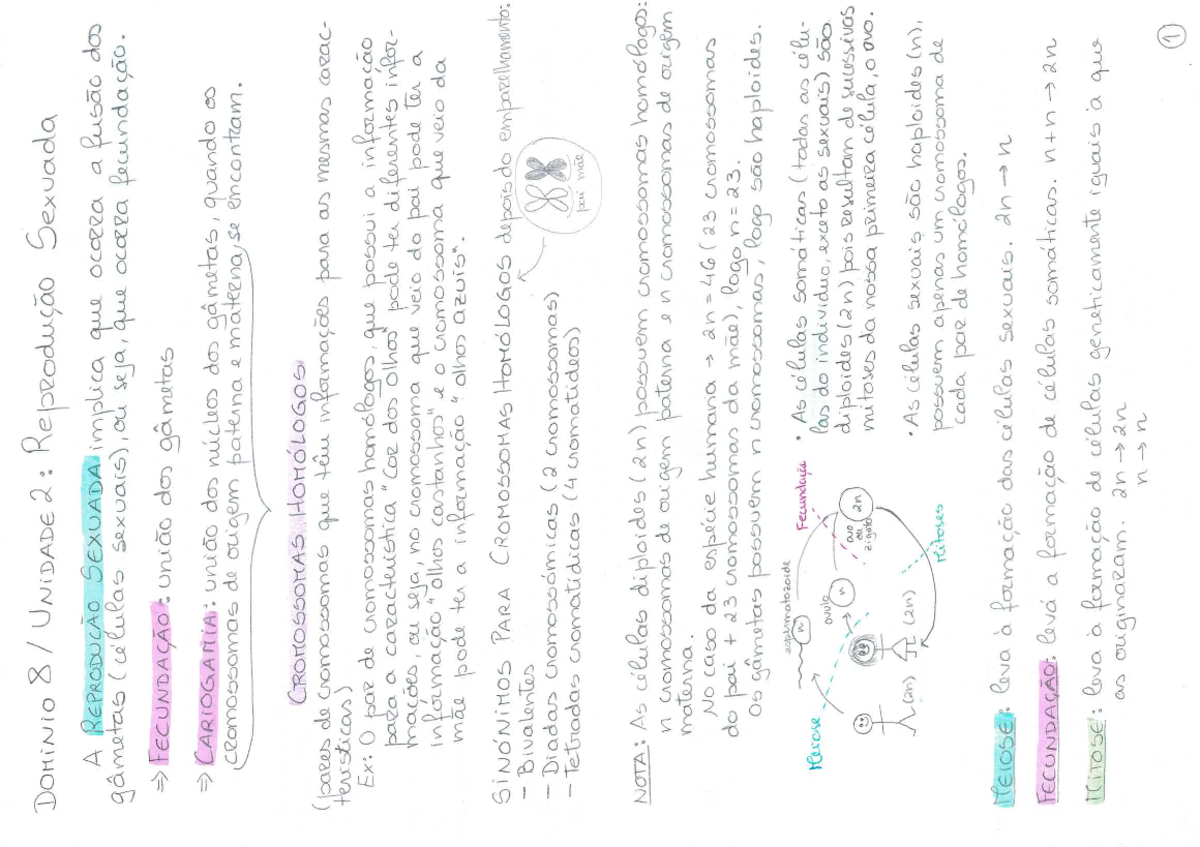 DOMÍNIO 8 / UNIDADE 2: REPRODUÇÃO SEXUADA
A REPRODUÇÃO SEXUADA implica que ocorra a fusão dos
gâmetas (células sexuais), ou seja, que ocorra fecundação.
⇒ FECUNDAÇÃO: união dos gâmetas
⇒ CARIOGAMIA: união dos núcleos dos gâmetas, quando os
cromossomas de origem paterna e materna se encontram.
CROMOSSOMAS HOMÓLOGOS
(pares de cromossomas que têm informações para as mesmas carac-
terísticas)
Ex: O par de cromossomas homólogos, que possui a informação
para a característica "cor dos olhos" pode ter diferentes infor-
mações, ou seja, no cromossoma que veio do pai pode ter a
informação "olhos castanhos" e o cromossoma que veio da
mãe pode ter a informação "olhos azuis".
SINÓNIMOS PARA CROMOSSOMAS HOMÓLOGOS depois do emparelhamento:
- Bivalentes
- Díadas cromossómicas (2 cromossomas)
- Tetradas cromatídicas (4 cromatídios)
pai mãe
NOTA: As células diploides (2n) possuem cromossomas homólogos:
n cromossomas de origem paterna e n cromossomas de origem
materna.
No caso da espécie humana → 2n = 46 (23 cromossomas
do pai + 23 cromossomas da mãe), logo n = 23.
Os gâmetas possuem n cromossomas, logo são haploides.
Meiose
espermatozoide
n
óvulo
n
Fecundação
ovo
ou
zigoto
2n
Mitoses
(2n)
(2n)
• As células somáticas (todas as célu-
las do indivíduo, exceto as sexuais) são
diploides (2n) pois resultam de sucessivas
mitoses da nossa primeira célula, o ovo.
• As células sexuais são haploides (n),
possuem apenas um cromossoma de
cada par de homólogos.
MEIOSE: leva à formação das células sexuais. 2n → n
FECUNDAÇÃO: levá à formação de células somáticas. n+n → 2n
MITOSE: leva à formação de células geneticamente iguais à que
as originaram. 2n → 2n
n → n
1